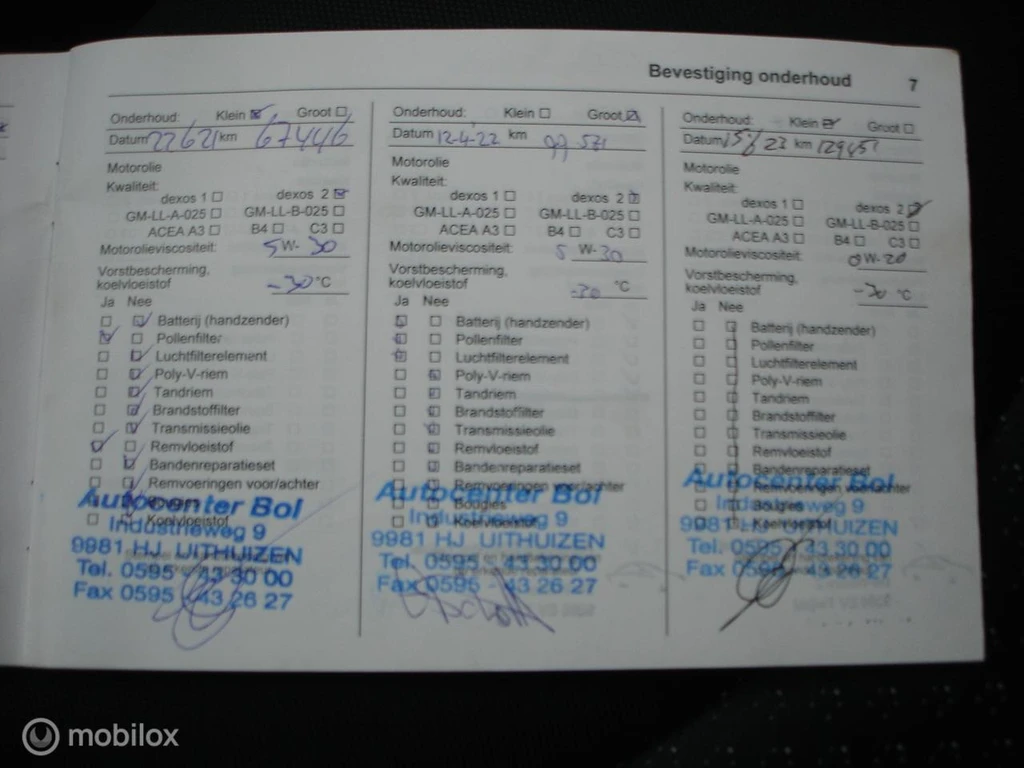 Bevestiging onderhoud 7
Onderhoud: Klein Groot
Datum 22621 km 67446
Motorolie
Kwaliteit:
dexos 1 dexos 2
GM-LL-A-025 GM-LL-B-025
ACEA A3 B4 C3
Motorolieviscositeit: 5W-30
Vorstbescherming,
koelvloeistof -30 °C
Ja Nee
Batterij (handzender)
Pollenfilter
Luchtfilterelement
Poly-V-riem
Tandriem
Brandstoffilter
Transmissieolie
Remvloeistof
Bandenreparatieset
Remvoeringen voor/achter
Bougies
Koelvloeistof
Autocenter Bol
Industrieweg 9
9981 HJ UITHUIZEN
Tel. 0595 - 43 30 00
Fax 0595 - 43 26 27
Onderhoud: Klein Groot
Datum 12-4-22 km 99 571
Motorolie
Kwaliteit:
dexos 1 dexos 2
GM-LL-A-025 GM-LL-B-025
ACEA A3 B4 C3
Motorolieviscositeit: 5 W-30
Vorstbescherming,
koelvloeistof -30 °C
Ja Nee
Batterij (handzender)
Pollenfilter
Luchtfilterelement
Poly-V-riem
Tandriem
Brandstoffilter
Transmissieolie
Remvloeistof
Bandenreparatieset
Remvoeringen voor/achter
Bougies
Koelvloeistof
Autocenter Bol
Industrieweg 9
9981 HJ UITHUIZEN
Tel. 0595 - 43 30 00
Fax 0595 - 43 26 27
Onderhoud: Klein Groot
Datum km
Motorolie
Kwaliteit:
dexos 1 dexos 2
GM-LL-A-025 GM-LL-B-025
ACEA A3 B4 C3
Motorolieviscositeit: 0W-20
Vorstbescherming,
koelvloeistof -30 °C
Ja Nee
Batterij (handzender)
Pollenfilter
Luchtfilterelement
Poly-V-riem
Tandriem
Brandstoffilter
Transmissieolie
Remvloeistof
Bandenreparatieset
Remvoeringen voor/achter
Bougies
Koelvloeistof
Autocenter Bol
Industrieweg 9
9981 HJ UITHUIZEN
Tel. 0595 - 43 30 00
Fax 0595 - 43 26 27
mobilox